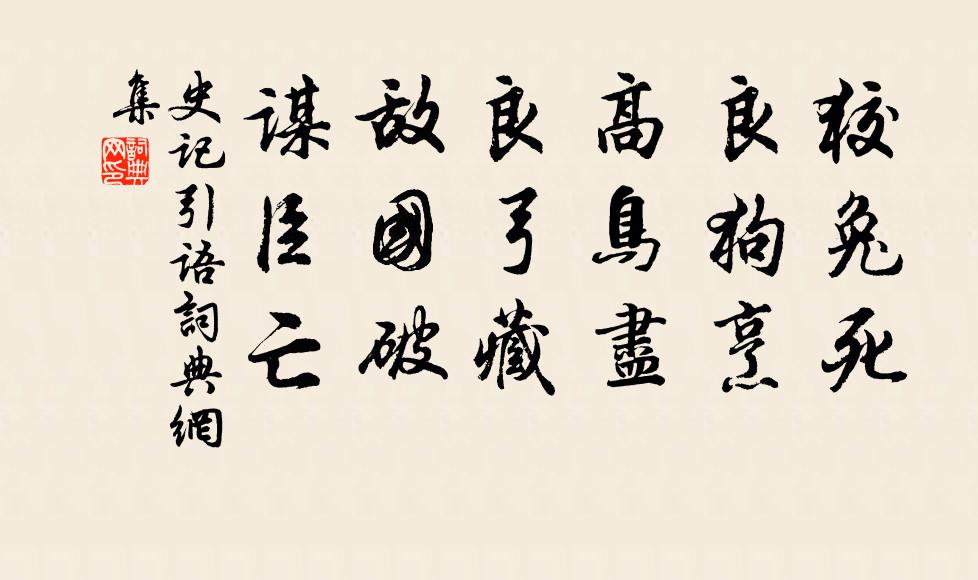 狡兔死
良狗烹
高鳥盡
良弓藏
敵國破
謀臣亡
史记引语詞典網
集
詞典
网印